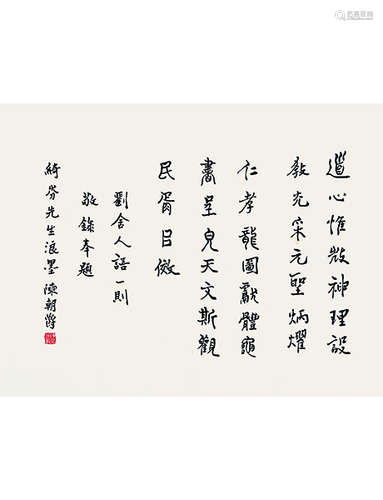 道心惟微神理設
教光采元聖炳燿
仁孝龍圖獻體龜
書呈皃天文斯觀
民胥㠯傚
劉舍人語一則
敬錄奉題
綺芬先生浪墨 陳朝爵